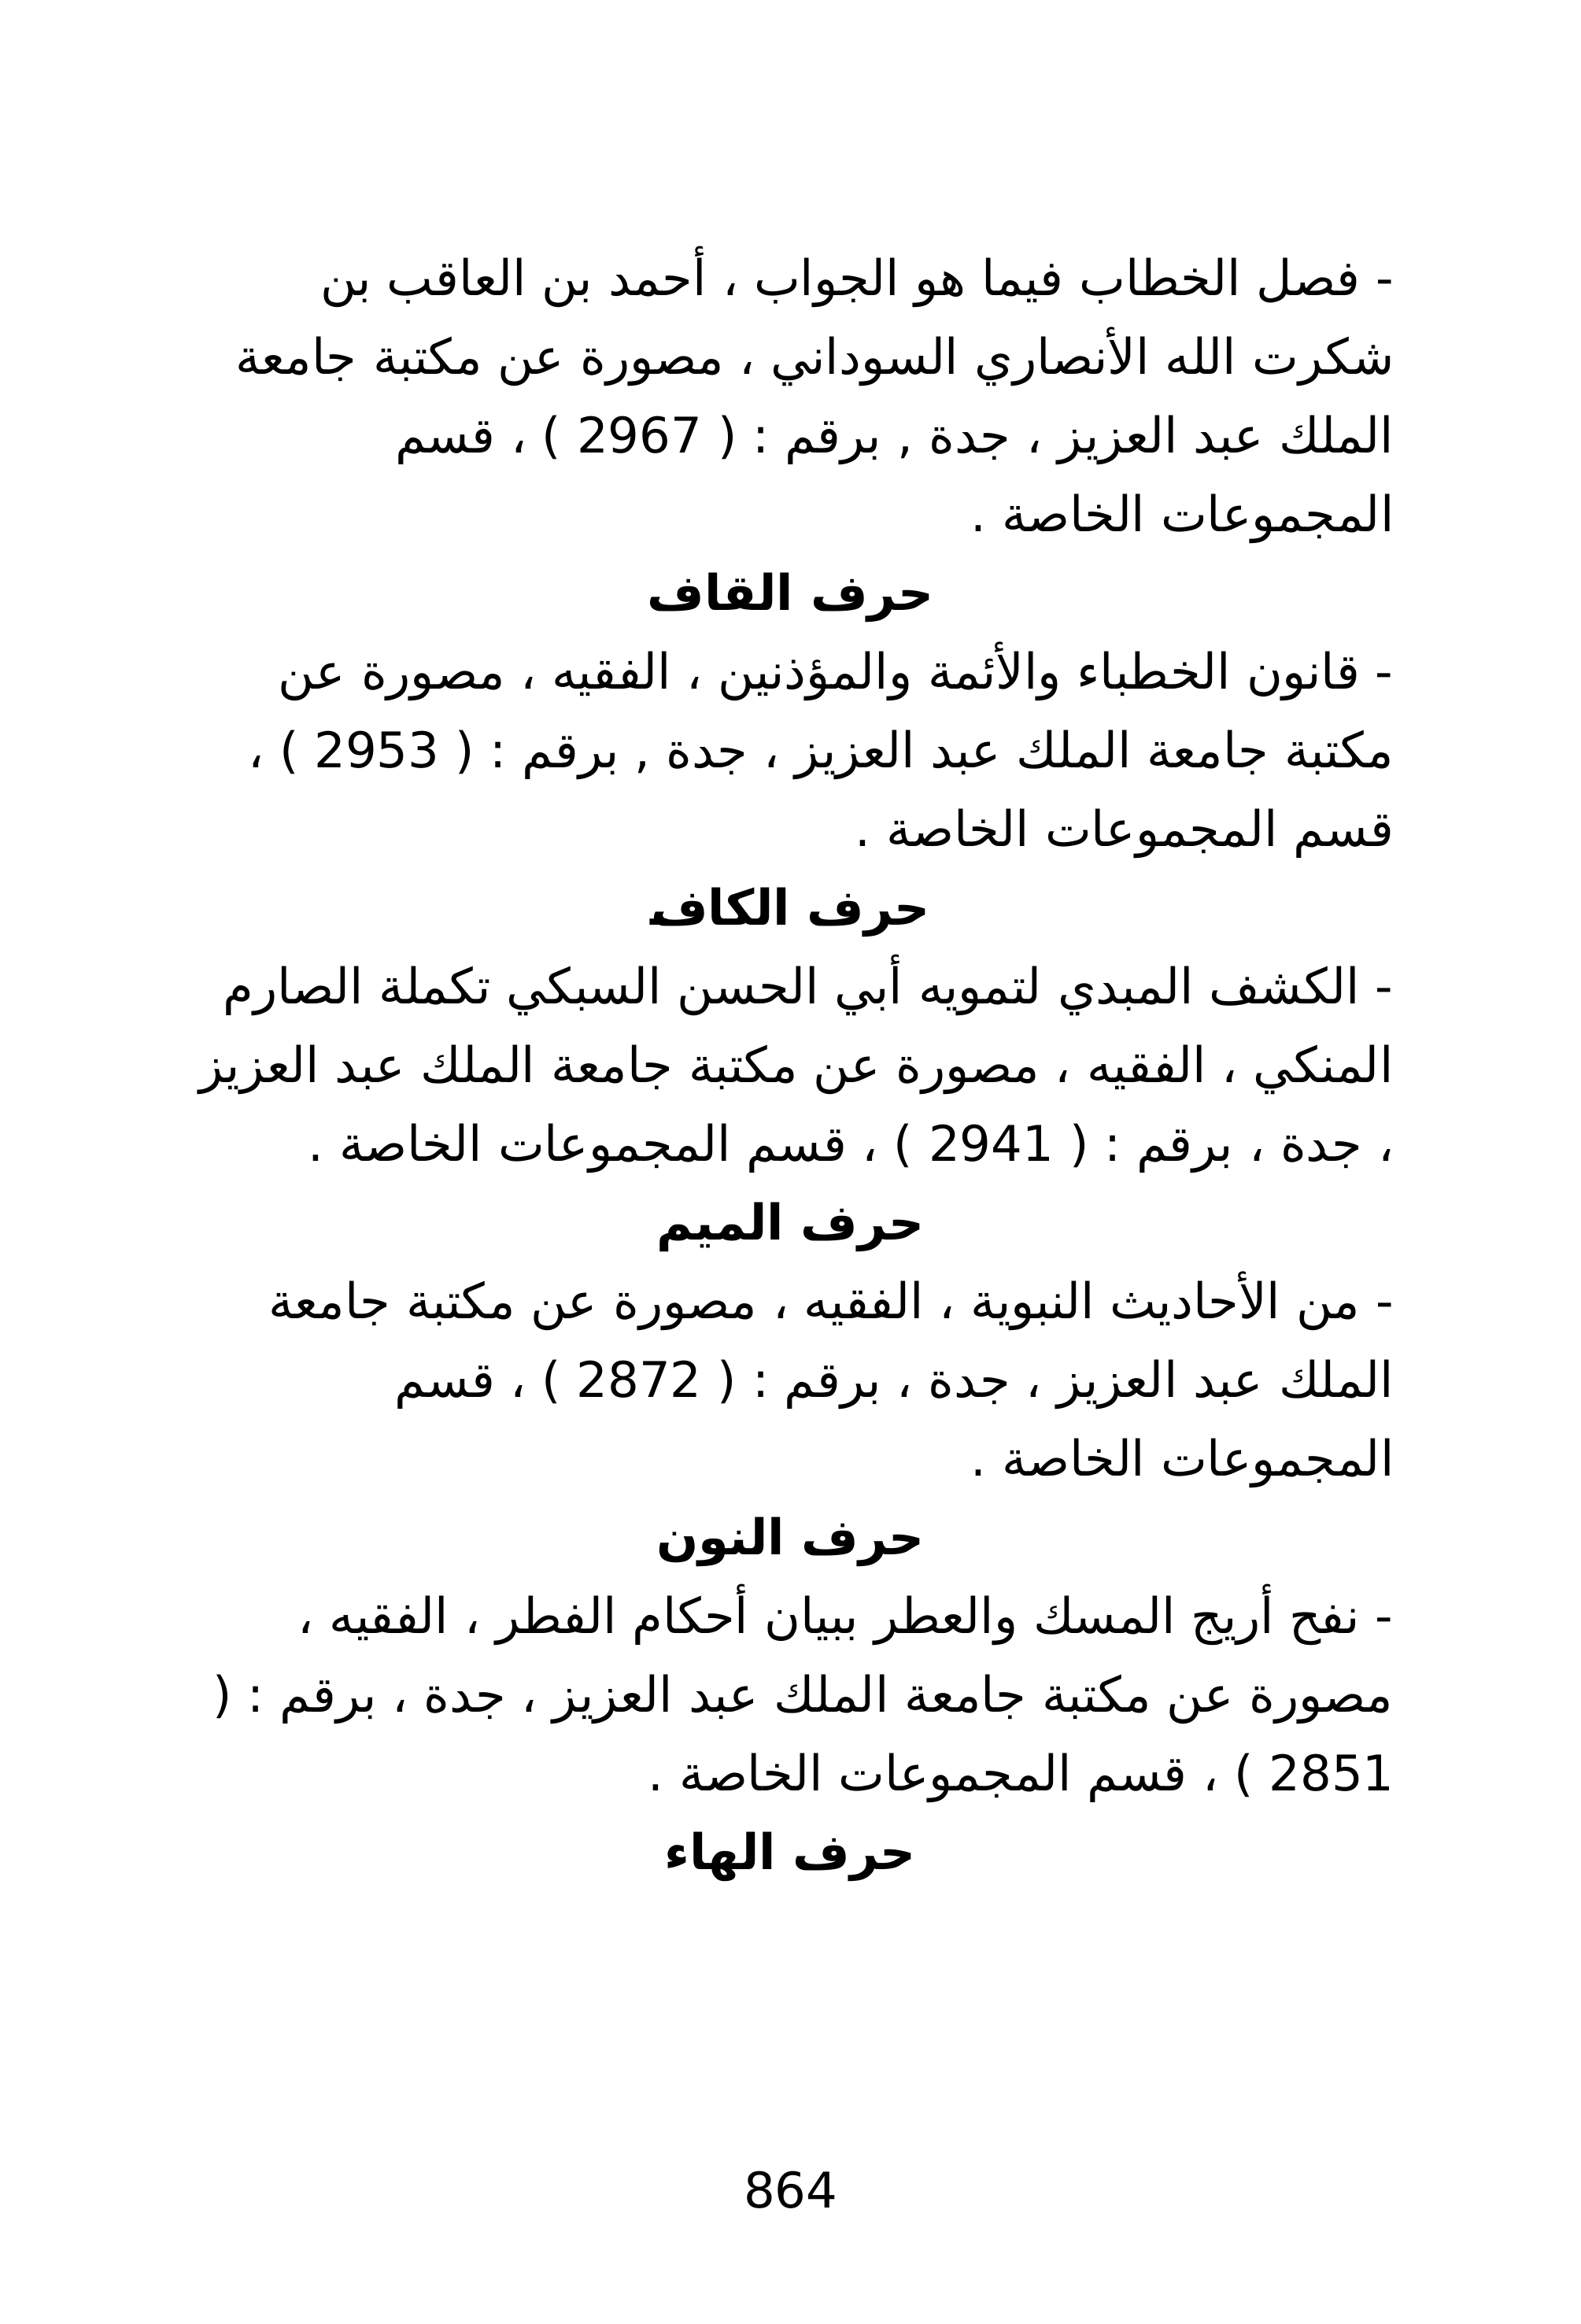 - فصل الخطاب فيما هو الجواب ، أحمد بن العاقب بن
شكرت الله الأنصاري السوداني ، مصورة عن مكتبة جامعة
الملك عبد العزيز ، جدة , برقم : ( 2967 ) ، قسم
المجموعات الخاصة .
حرف القاف
- قانون الخطباء والأئمة والمؤذنين ، الفقيه ، مصورة عن
مكتبة جامعة الملك عبد العزيز ، جدة , برقم : ( 2953 ) ،
قسم المجموعات الخاصة .
حرف الكافـ
- الكشف المبدي لتمويه أبي الحسن السبكي تكملة الصارم
المنكي ، الفقيه ، مصورة عن مكتبة جامعة الملك عبد العزيز
، جدة ، برقم : ( 2941 ) ، قسم المجموعات الخاصة .
حرف الميم
- من الأحاديث النبوية ، الفقيه ، مصورة عن مكتبة جامعة
الملك عبد العزيز ، جدة ، برقم : ( 2872 ) ، قسم
المجموعات الخاصة .
حرف النون
- نفح أريج المسك والعطر ببيان أحكام الفطر ، الفقيه ،
مصورة عن مكتبة جامعة الملك عبد العزيز ، جدة ، برقم : (
2851 ) ، قسم المجموعات الخاصة .
حرف الهاء
864